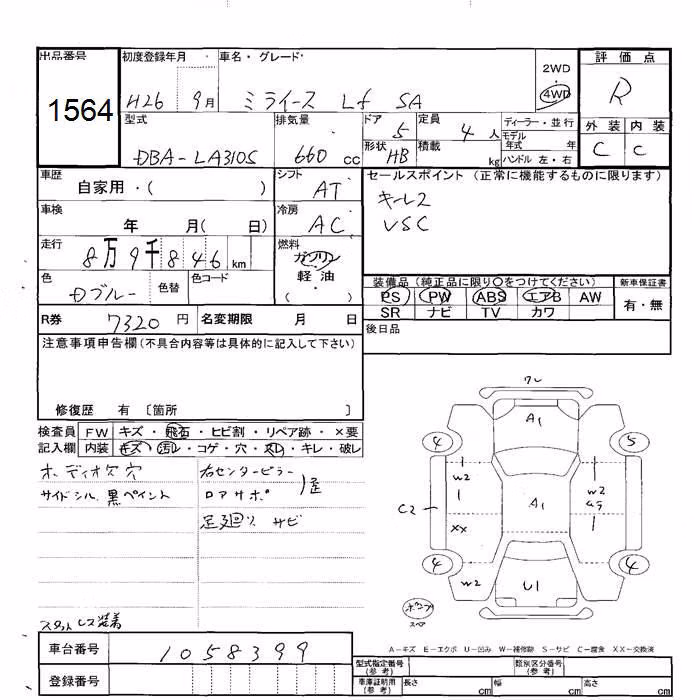 出品番号 初度登録年月 車名・グレード 評価点
1564 H26 9月 ミライース Lf SA 2WD・4WD R
型式 排気量 ドア 5 定員 4人 ディーラー・並行 外装 内装
DBA-LA310S 660 cc 形状 HB 積載 kg モデル年式 年 ハンドル 左・右 C C
車歴 自家用・( ) シフト AT セールスポイント (正常に機能するものに限ります)
キーレス
VSC
車検 年 月( 日) 冷房 AC
走行 8万9千846 km 燃料 ガソリン 軽油・( )
色 Dブルー 色替 色コード 装備品 (純正品に限り〇をつけてください) 新車保証書
PS PW ABS エアB AW 有・無
SR ナビ TV カワ
R券 7320円 名変期限 月 日 後日品
注意事項申告欄(不具合内容等は具体的に記入して下さい)
修復歴 有 〔箇所 〕
検査員 記入欄 FW キズ・飛石・ヒビ割・リペア跡・×要
内装 キズ・汚レ・コゲ・穴・スレ・キレ・破レ
オーディオ欠 穴 右センターピラー
サイドシル 黒ペイント ロアサポ
足廻り サビ
スタットレス装着
ワレ
A1
4 5
W2 W2
C2 A1
XX
4 4
W2 U1
スペア
A-キズ E-エクボ U-凹み W-補修跡 S-サビ C-腐食 XX-交換済
車台番号 1058399
型式指定番号(参考) 類別区分番号(参考)
登録番号 車庫証明用(参考) 長さ cm 幅 cm 高さ cm